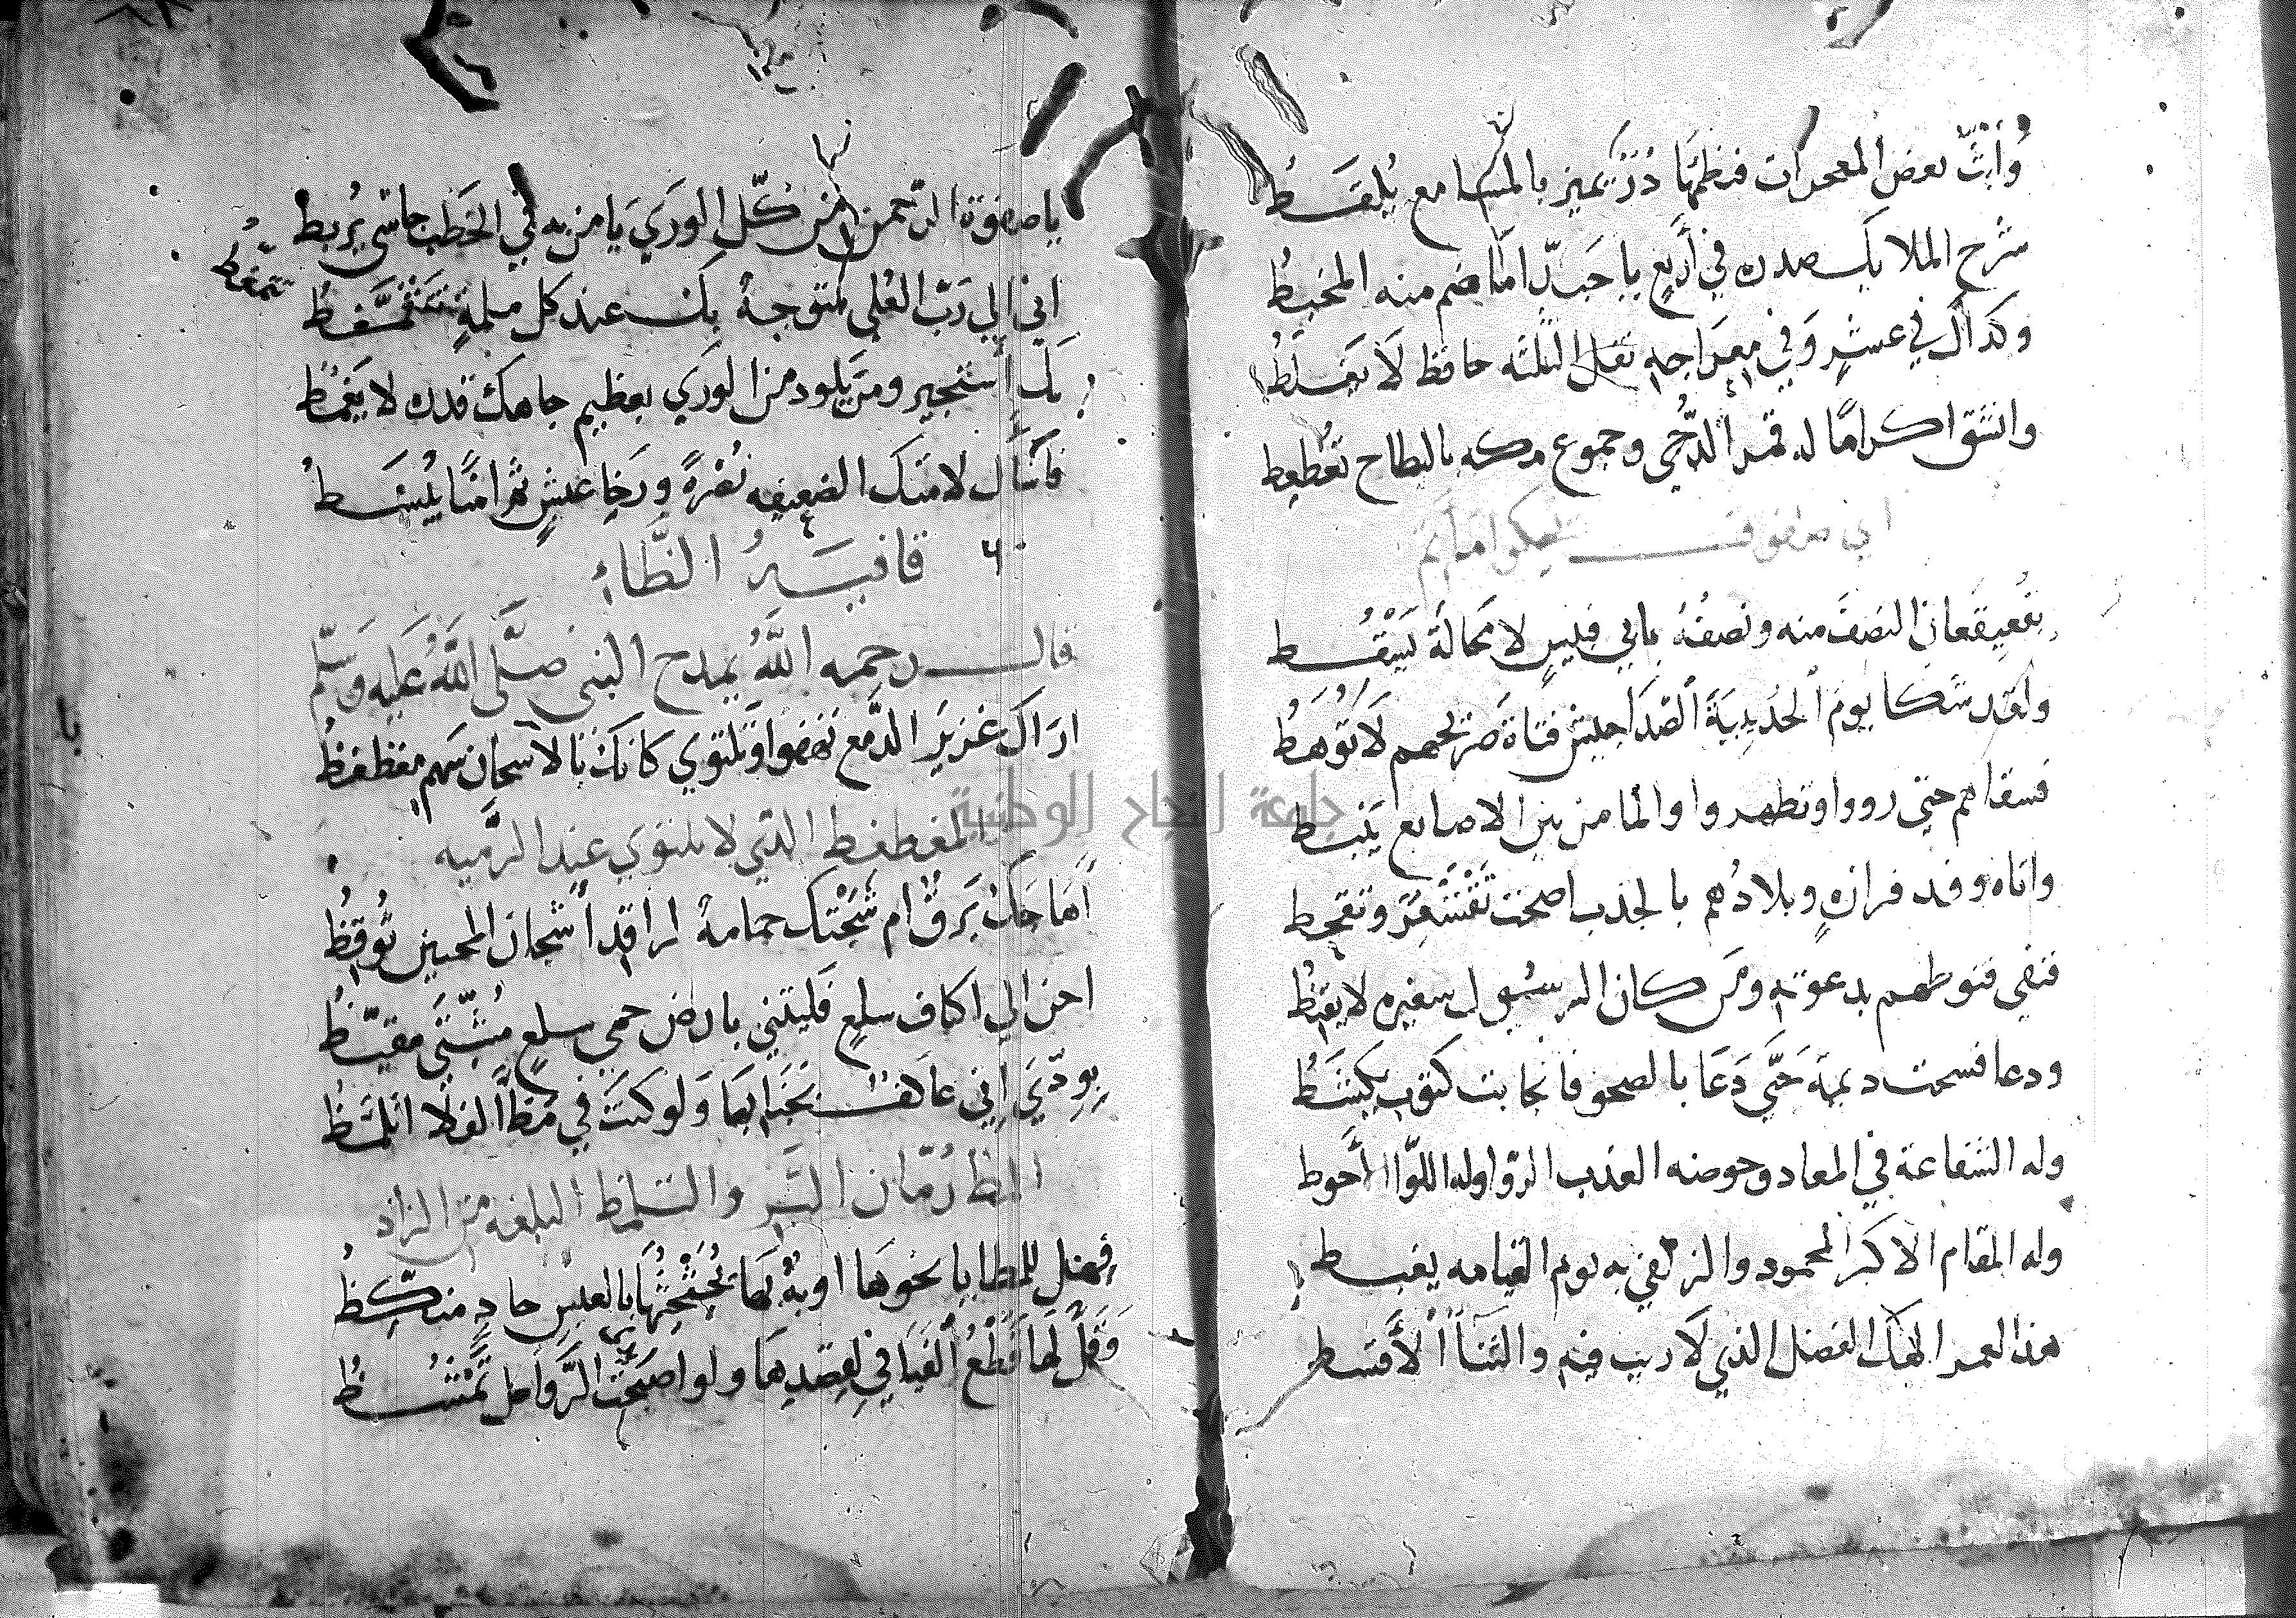 وأبث بعض المعجزات فنظمها درر يميز بالمسامع يلقط
شرح الملايك صدره في أربع يا حبذا ما ضم منه المخيط
وكذاك في عشر وفي معراجه نقل الثلثه حافظ لا يغلط
وانشق اكراما له قمر الدجى وجموع مكه بالبطاح تعطعط
بقعيقعان النصف منه ونصفه بابي قبيس لا محالة يسقط
ولقد شكا يوم الحديبية الصدا جيش فتاة ضريحهم لا توهط
فسقاهم حتى رووا وتطهروا والما من بين الاصابع ينبط
واتاه وفد فزارة وبلادهم بالجذب اصبحت تقشعر وتقحط
فنفى قنوطهم بدعوته ومن كان الرسول سفيره لا يقنط
ودعا فسحت ديمة حتى دعا بالصحو فانجابت كثوب يكشط
وله الشفاعة في المعاد وحوضه العذب الروا وله اللوا الأحوط
وله المقام الاكبر المحمود والزلفى به يوم القيامه يغبط
هذا لعمر الهك الفضل الذي لا ريب فيه والثنآ الأقسط
يا صفوة الرحمن من كل الورى يا من به في الخطب جاشى يربط
اني الى رب العلى متوجه بك عند كل ملمة
بك استجير ومن يلوذ من الورى بعظيم جاهك قدره لا يغمط
فاسأل لامتك الضعيفه نصرة ورخا عيش ثم امنا يبسط
قافية الظاء
قال رحمه الله يمدح النبي صلى الله عليه وسلم
اراك غزير الدمع نهضوا وتلتوي كانك بالاسجان سهم مغظغظ
المغظغظ الذي لا يلتوي عند الرميه
أهاجك برق ام شجتك حمامة اراقد أشجان المحبين توقظ
احن الى اكناف سلع فليتني بارض حمى سلع مشتى مقيظ
بودي اني عاكف بخيامها ولو كنت في مظ الفلا اتلمظ
المظ رمان البر والتلمظ البلغه من الزاد
فهل للمطايا نحوها اوبة لها يحثحثها بالعيس حاد منكظ
وقل لها قطع الفيافي لقصدها ولو اصبحت الرواحل تمشظ